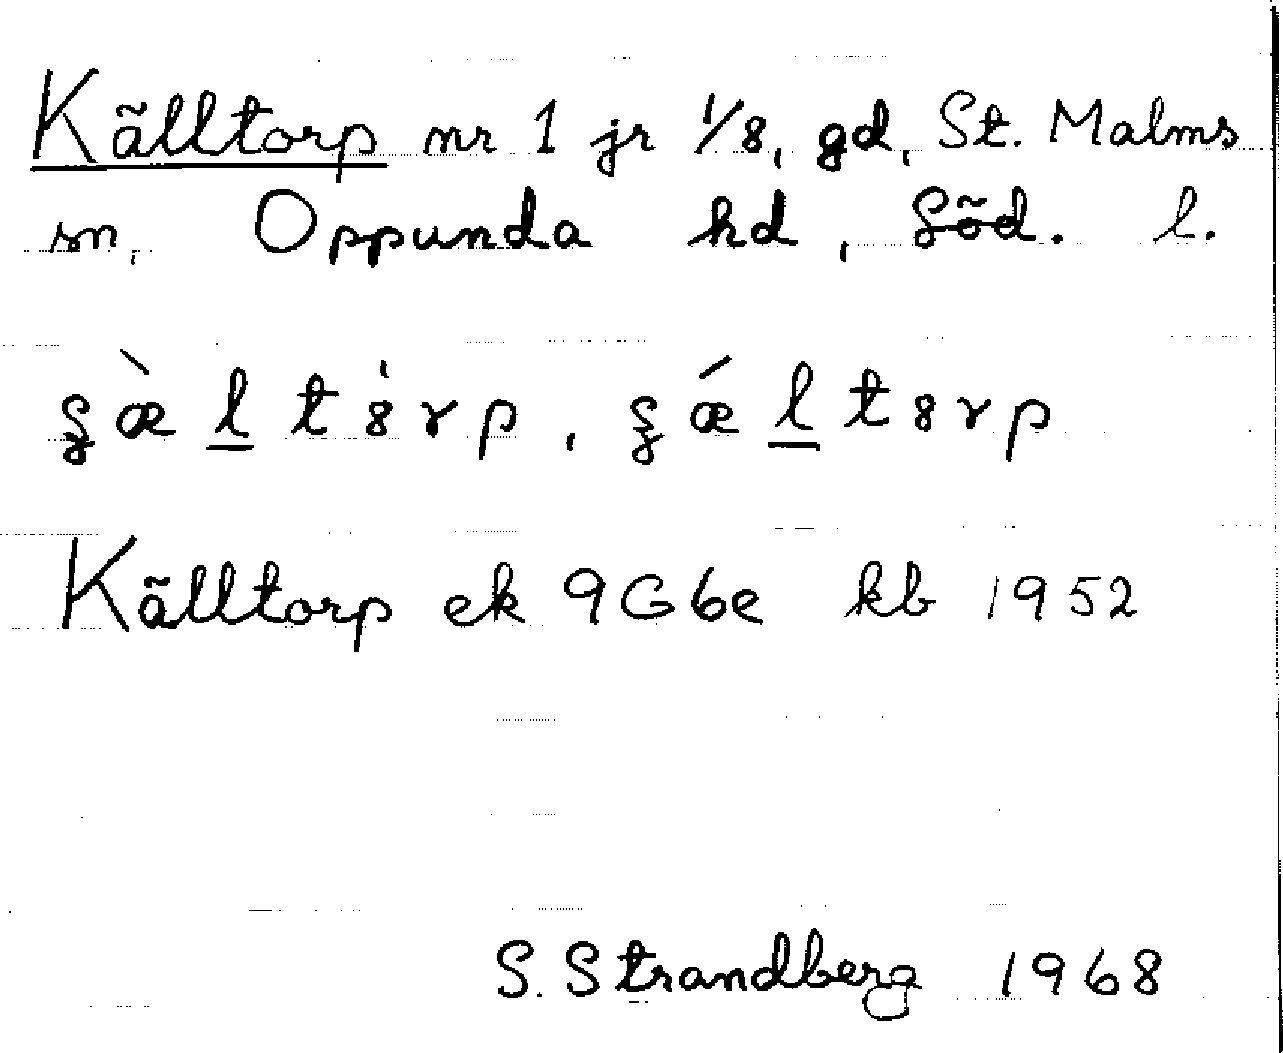 Källtorp nr 1 jr 1/8, gd, St. Malms
sn, Oppunda hd, Söd. l.
ʂæ̀ltȣ̍rp, ʂǽltȣrp
Källtorp ek 9G6e kb 1952
S. Strandberg 1968